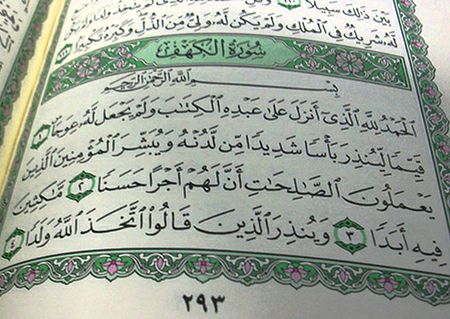 بَيْنَ ذَٰلِكَ سَبِيلًا
لَّهُۥ شَرِيكٌ فِى ٱلْمُلْكِ وَلَمْ يَكُن لَّهُۥ وَلِىٌّ مِّنَ ٱلذُّلِّ وَكَبِّرْهُ تَكْبِيرًا
سُورَةُ الكَهْفِ
بِسْمِ ٱللَّهِ ٱلرَّحْمَٰنِ ٱلرَّحِيمِ
ٱلْحَمْدُ لِلَّهِ ٱلَّذِىٓ أَنزَلَ عَلَىٰ عَبْدِهِ ٱلْكِتَٰبَ وَلَمْ يَجْعَل لَّهُۥ عِوَجَا ١
قَيِّمًا لِّيُنذِرَ بَأْسًا شَدِيدًا مِّن لَّدُنْهُ وَيُبَشِّرَ ٱلْمُؤْمِنِينَ ٱلَّذِينَ
يَعْمَلُونَ ٱلصَّٰلِحَٰتِ أَنَّ لَهُمْ أَجْرًا حَسَنًا ٢ مَّٰكِثِينَ
فِيهِ أَبَدًا ٣ وَيُنذِرَ ٱلَّذِينَ قَالُوا۟ ٱتَّخَذَ ٱللَّهُ وَلَدًا ٤
٢٩٣